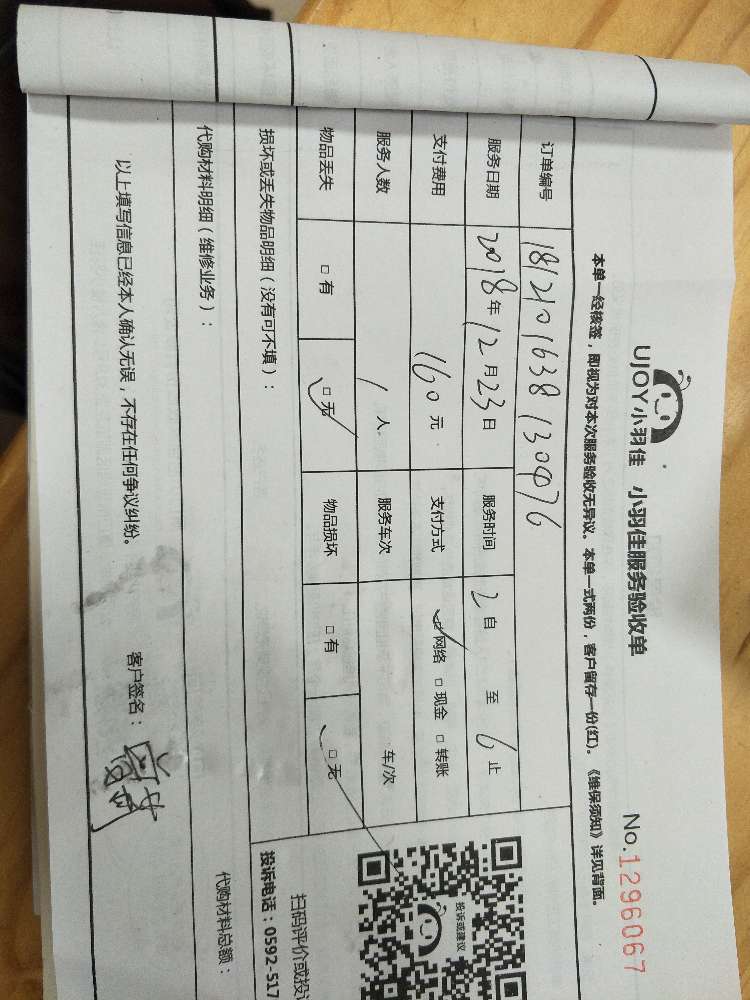 UJOY小羽佳 小羽佳服务验收单
No.1296067
本单一经核签，即视为对本次服务验收无异议。本单一式两份，客户留存一份(红)。《维保须知》详见背面。
订单编号
服务日期 2018年12月23日 服务时间 2自 至 6止
支付费用 160元 支付方式 □网络 □现金 □转账
服务人数 1人 服务车次 车/次
物品丢失 □有 □无 物品损坏 □有 □无
损坏或丢失物品明细（没有可不填）：
投诉或建议
扫码评价或投
投诉电话：0592-517
代购材料明细（维修业务）：
代购材料总额：
以上填写信息已经本人确认无误，不存在任何争议纠纷。 客户签名：